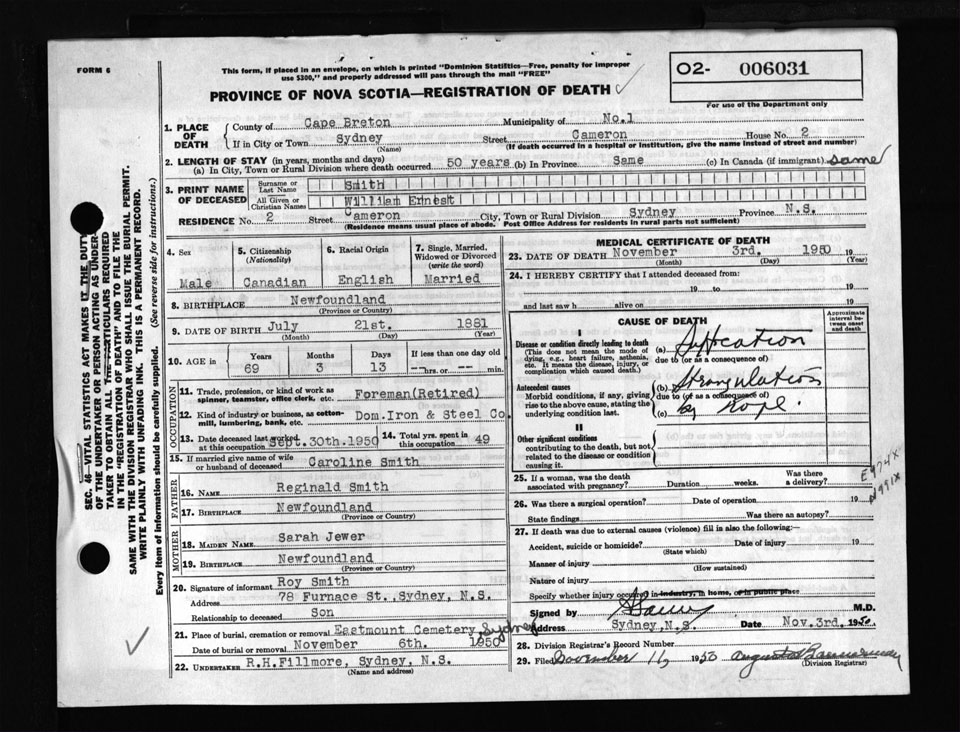 FORM 6
This form, if placed in an envelope, on which is printed "Dominion Statistics—Free, penalty for improper
use $300," and properly addressed will pass through the mail "FREE"
PROVINCE OF NOVA SCOTIA—REGISTRATION OF DEATH
O2- 006031
For use of the Department only
1. PLACE OF DEATH
County of Cape Breton Municipality of No.1
If in City or Town Sydney Street Cameron House No. 2
(Name) (If death occurred in a hospital or institution, give the name instead of street and number)
2. LENGTH OF STAY (in years, months and days)
(a) In City, Town or Rural Division where death occurred 50 years (b) In Province Same (c) In Canada (if immigrant) same
3. PRINT NAME OF DECEASED
Surname or Last Name Smith
All Given or Christian Names William Ernest
RESIDENCE No. 2 Street Cameron City, Town or Rural Division Sydney Province N.S.
(Residence means usual place of abode. Post Office Address for residents in rural parts not sufficient)
4. Sex
Male
5. Citizenship (Nationality)
Canadian
6. Racial Origin
English
7. Single, Married, Widowed or Divorced (write the word)
Married
8. BIRTHPLACE Newfoundland
(Province or Country)
9. DATE OF BIRTH July 21st. 1881
(Month) (Day) (Year)
10. AGE in Years Months Days If less than one day old
69 3 13 --hrs. or -- min.
OCCUPATION
11. Trade, profession, or kind of work as spinner, teamster, office clerk, etc. Foreman(Retired)
12. Kind of industry or business, as cotton-mill, lumbering, bank, etc. Dom.Iron & Steel Co.
13. Date deceased last worked at this occupation Sept.30th.1950
14. Total yrs. spent in this occupation 49
15. If married give name of wife or husband of deceased Caroline Smith
FATHER
16. NAME Reginald Smith
17. BIRTHPLACE Newfoundland
(Province or Country)
MOTHER
18. MAIDEN NAME Sarah Jewer
19. BIRTHPLACE Newfoundland
(Province or Country)
20. Signature of informant Roy Smith
Address 78 Furnace St.,Sydney, N.S.
Relationship to deceased Son
21. Place of burial, cremation or removal Eastmount Cemetery, Sydney
Date of burial or removal November 6th. 1950
22. UNDERTAKER R.H.Fillmore, Sydney, N.S.
(Name and address)
MEDICAL CERTIFICATE OF DEATH
23. DATE OF DEATH November 3rd. 1950 19
(Month) (Day) (Year)
24. I HEREBY CERTIFY that I attended deceased from:
19 to 19
and last saw h alive on 19
CAUSE OF DEATH
Approximate interval between onset and death
I
Disease or condition directly leading to death
(This does not mean the mode of dying, e.g., heart failure, asthenia, etc. It means the disease, injury, or complication which caused death.)
(a) Suffocation
due to (or as a consequence of)
Antecedent causes
Morbid conditions, if any, giving rise to the above cause, stating the underlying condition last.
(b) Strangulation
due to (or as a consequence of)
(c) by Rope.
II
Other significant conditions
contributing to the death, but not related to the disease or condition causing it.
25. If a woman, was the death associated with pregnancy? Duration weeks. Was there a delivery?
E974X
N991X
26. Was there a surgical operation? Date of operation 19
State findings Was there an autopsy?
27. If death was due to external causes (violence) fill in also the following:—
Accident, suicide or homicide? Date of injury 19
(State which)
Manner of injury
(How sustained)
Nature of injury
Specify whether injury occurred in industry, in home, or in public place
Signed by M.D.
Address Sydney,N.S. Date Nov.3rd. 1950
28. Division Registrar's Record Number
29. Filed November 16 1950
(Division Registrar)
SEC. 46 —VITAL STATISTICS ACT MAKES IT THE DUTY
OF THE UNDERTAKER OR PERSON ACTING AS UNDER-
TAKER TO OBTAIN ALL THE PARTICULARS REQUIRED
IN THE "REGISTRATION OF DEATH" AND TO FILE THE
SAME WITH THE DIVISION REGISTRAR WHO SHALL ISSUE THE BURIAL PERMIT.
WRITE PLAINLY WITH UNFADING INK. THIS IS A PERMANENT RECORD.
Every item of information should be carefully supplied. (See reverse side for instructions.)